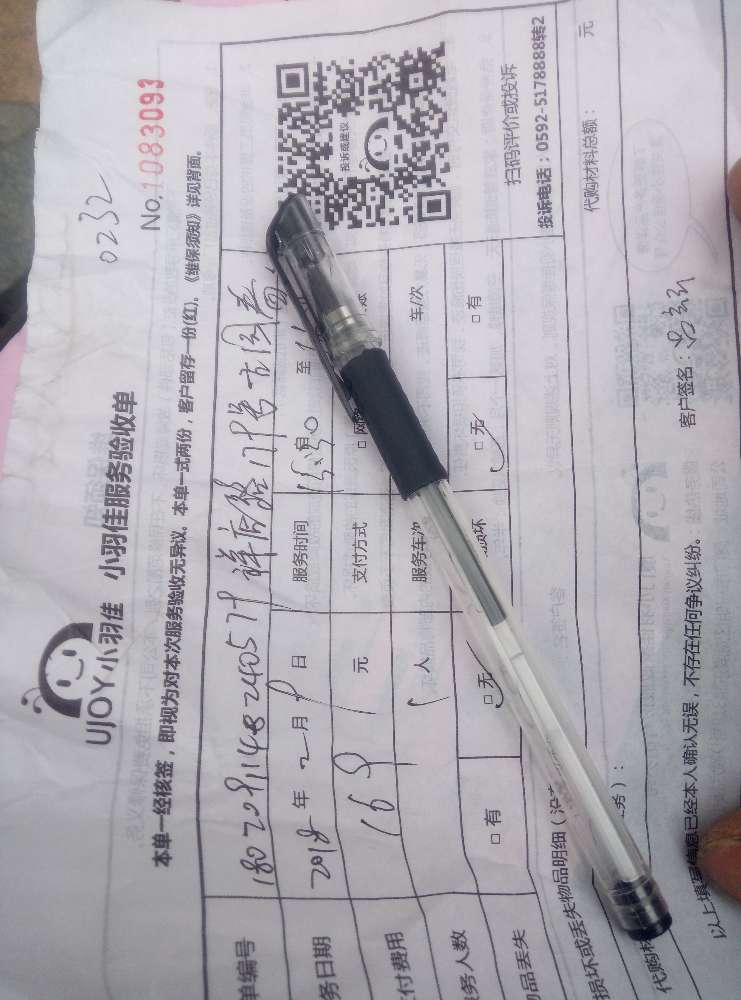 0232
No.1083093
UJOY小羽佳 小羽佳服务验收单
本单一经核签，即视为对本次服务验收无异议。本单一式两份，客户留存一份(红)。《维保须知》详见背面。
单编号
务日期 2018 年 2 月 9 日 服务时间 至
付费用 169 元 支付方式
务人数 1 人 服务车次 车/次
品丢失 □有 □无 损坏 □无 □有
投诉或建议
扫码评价或投诉
投诉电话：0592-5178888转2
损坏或丢失物品明细
务）：
代购材 代购材料总额： 元
以上填写信息已经本人确认无误，不存在任何争议纠纷。 客户签名：